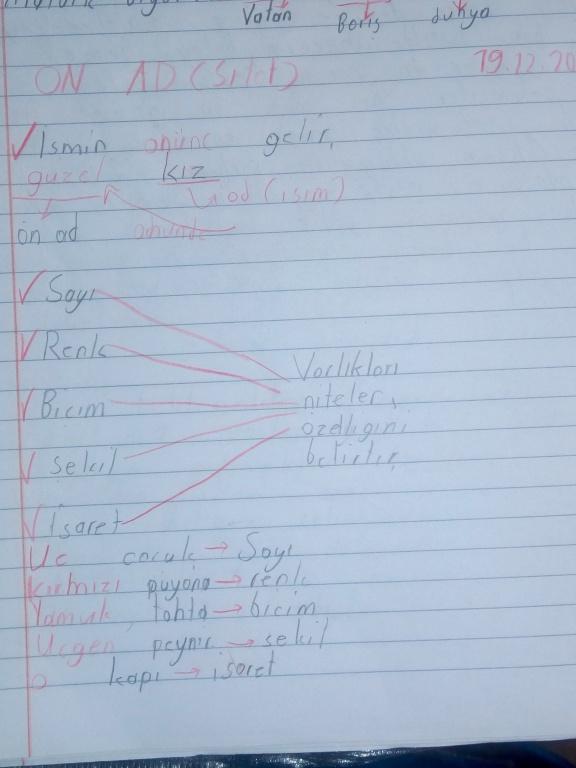 Vatan Barış dünya
ÖN AD (Sıfat) 19.12.20
İsmin önüne gelir.
güzel kız
ad (isim)
ön ad
Sayı
Renk
Varlıkları
Biçim niteler,
özelliğini
şekil belirtir
İşaret
Üç çocuk → Sayı
Kırmızı → renk
Yamuk tahta → biçim
Üçgen peynir → şekil
O kapı → işaret